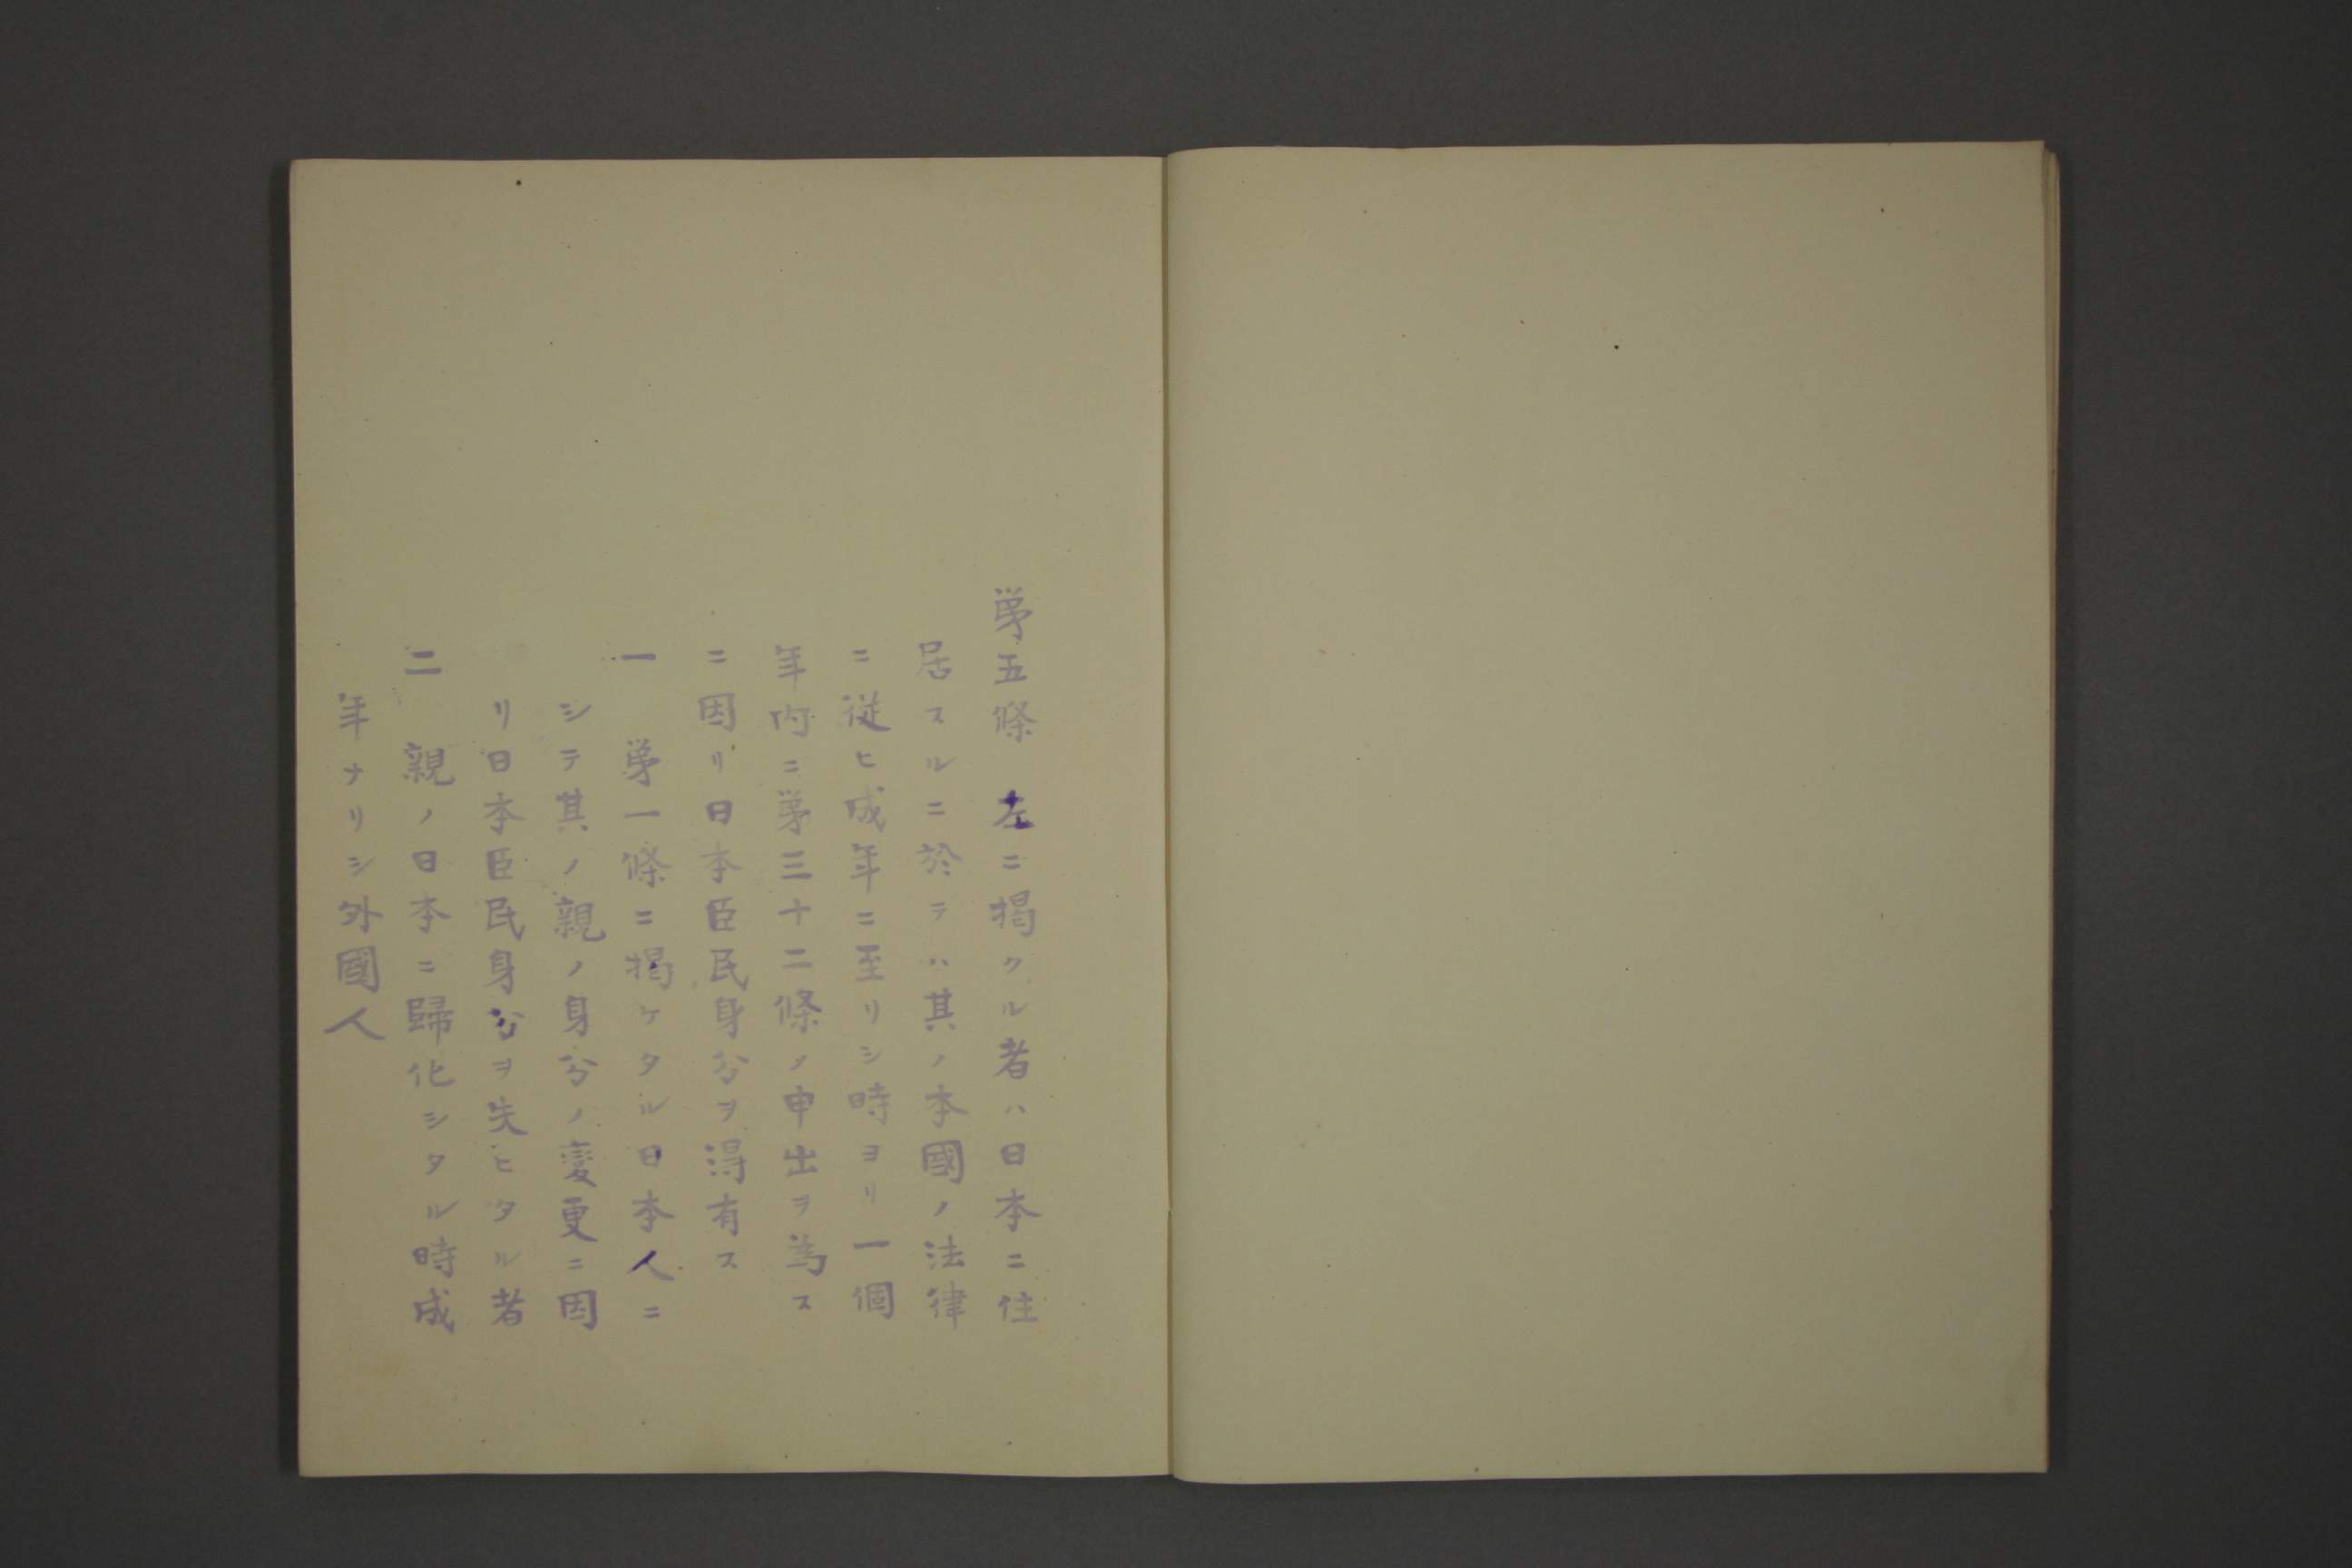 第五條　左ニ掲クル者ハ日本ニ住
居スルニ於テハ其ノ本國ノ法律
ニ従ヒ成年ニ至リシ時ヨリ一個
年内ニ第三十二條ノ申出ヲ為ス
ニ因リ日本臣民身分ヲ得有ス
一　第一條ニ掲ケタル日本人ニ
シテ其ノ親ノ身分ノ変更ニ因
リ日本臣民身分ヲ失ヒタル者
二　親ノ日本ニ歸化シタル時成
年ナリシ外國人